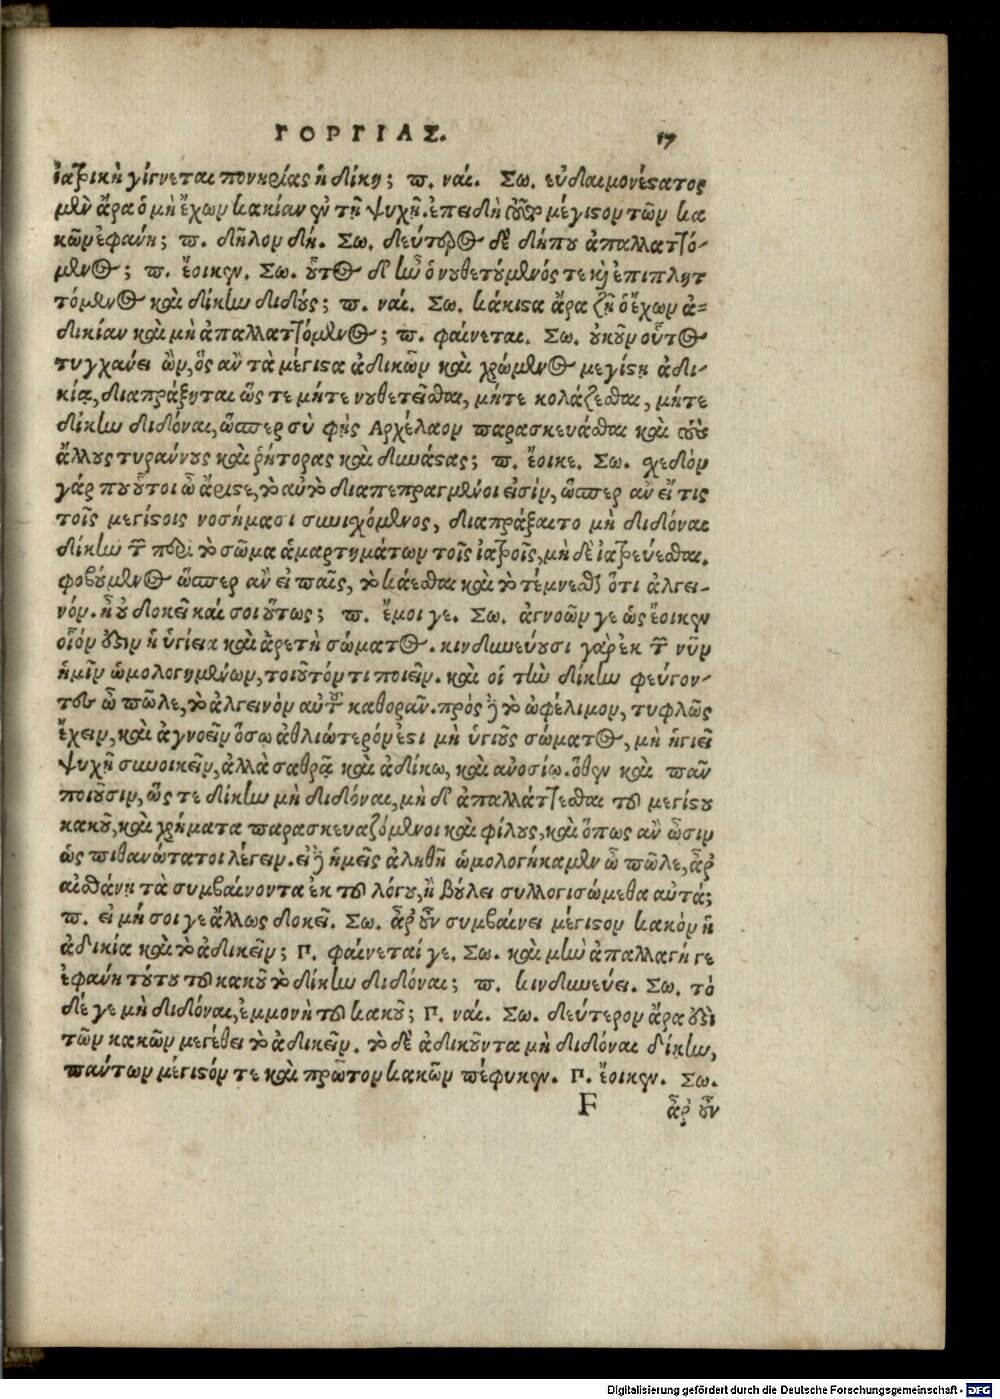 ΓΟΡΓΙΑΣ. 17
ἰατρικὴ γίγνεται πονηρίας ἡ δίκη; π. ναί. Σω. εὐδαιμονέστατος
μὲν ἄρα ὁ μὴ ἔχων κακίαν ἐν τῇ ψυχῇ. ἐπειδὴ τοῦτο μέγιστον τῶν κα
κῶν ἐφάνη; π. δῆλον δή. Σω. δεύτερος δὲ δήπου ἀπαλλαττό-
μενος; π. ἔοικεν. Σω. οὗτος δ' ἦν ὁ νουθετούμενός τε καὶ ἐπιπληττ
τόμενος καὶ δίκην διδούς; π. ναί. Σω. κάκιστα ἄρα ζῇ ὁ ἔχων ἀ-
δικίαν καὶ μὴ ἀπαλλαττόμενος; π. φαίνεται. Σω. οὐκοῦν οὗτος
τυγχάνει ὢν, ὃς ἂν τὰ μέγιστα ἀδικῶν καὶ χρώμενος μεγίστῃ ἀδι-
κίᾳ, διαπράξηται ὥς τε μήτε νουθετεῖσθαι, μήτε κολάζεσθαι, μήτε
δίκην διδόναι, ὥσπερ σὺ φῂς Αρχέλαον παρασκευάσθαι καὶ τοὺς
ἄλλους τυράννους καὶ ῥήτορας καὶ δυνάστας; π. ἔοικε. Σω. σχεδὸν
γάρ που οὗτοι ὦ ἄριστε, τὸ αὐτὸ διαπεπραγμένοι εἰσὶν, ὥσπερ ἂν εἴ τις
τοῖς μεγίστοις νοσήμασι συνισχόμενος, διαπράξαιτο μὴ διδόναι
δίκην τῶν περὶ τὸ σῶμα ἁμαρτημάτων τοῖς ἰατροῖς, μὴ δὲ ἰατρεύεσθαι.
φοβούμενος ὥσπερ ἂν εἰ παῖς, τὸ κάεσθαι καὶ τὸ τέμνεσθαι ὅτι ἀλγει-
νόν. ἢ οὐ δοκεῖ καί σοι οὕτως; π. ἔμοι γε. Σω. ἀγνοῶν γε ὡς ἔοικεν
οἷόν ἐστιν ἡ ὑγίεια καὶ ἀρετὴ σώματος. κινδυνεύουσι γὰρ ἐκ τῶν νῦν
ἡμῖν ὡμολογημένων, τοιοῦτόν τι ποιεῖν. καὶ οἱ τὴν δίκην φεύγον-
τες ὦ πῶλε, τὸ ἀλγεινὸν αὐτοῦ καθορᾶν. πρὸς δὲ τὸ ὠφέλιμον, τυφλῶς
ἔχειν, καὶ ἀγνοεῖν ὅσῳ ἀθλιώτερόν ἐστι μὴ ὑγιοῦς σώματος, μὴ ὑγιεῖ
ψυχῇ συνοικεῖν, ἀλλὰ σαθρᾷ καὶ ἀδίκῳ, καὶ ἀνοσίῳ. ὅθεν καὶ πᾶν
ποιοῦσιν, ὥς τε δίκην μὴ διδόναι, μὴ δ' ἀπαλλάττεσθαι τοῦ μεγίστου
κακοῦ, καὶ χρήματα παρασκευαζόμενοι καὶ φίλους, καὶ ὅπως ἂν ὦσιν
ὡς πιθανώτατοι λέγειν. εἰ δὲ ἡμεῖς ἀληθῆ ὡμολογήκαμεν ὦ πῶλε, ἆρ'
αἰσθάνῃ τὰ συμβαίνοντα ἐκ τοῦ λόγου, ἢ βούλει συλλογισώμεθα αὐτά;
π. εἰ μή σοι γε ἄλλως δοκεῖ. Σω. ἆρ' οὖν συμβαίνει μέγιστον κακὸν ἡ
ἀδικία καὶ τὸ ἀδικεῖν; Π. φαίνεταί γε. Σω. καὶ μὴν ἀπαλλαγή γε
ἐφάνη τούτου τοῦ κακοῦ τὸ δίκην διδόναι; π. κινδυνεύει. Σω. τὸ
δέ γε μὴ διδόναι, ἐμμονὴ τοῦ κακοῦ; Π. ναί. Σω. δεύτερον ἄρα ἐστὶ
τῶν κακῶν μεγέθει τὸ ἀδικεῖν. τὸ δὲ ἀδικοῦντα μὴ διδόναι δίκην,
πάντων μέγιστόν τε καὶ πρῶτον κακῶν πέφυκεν. Π. ἔοικεν. Σω.
F ἆρ' οὖν
Digitalisierung gefördert durch die Deutsche Forschungsgemeinschaft - DFG